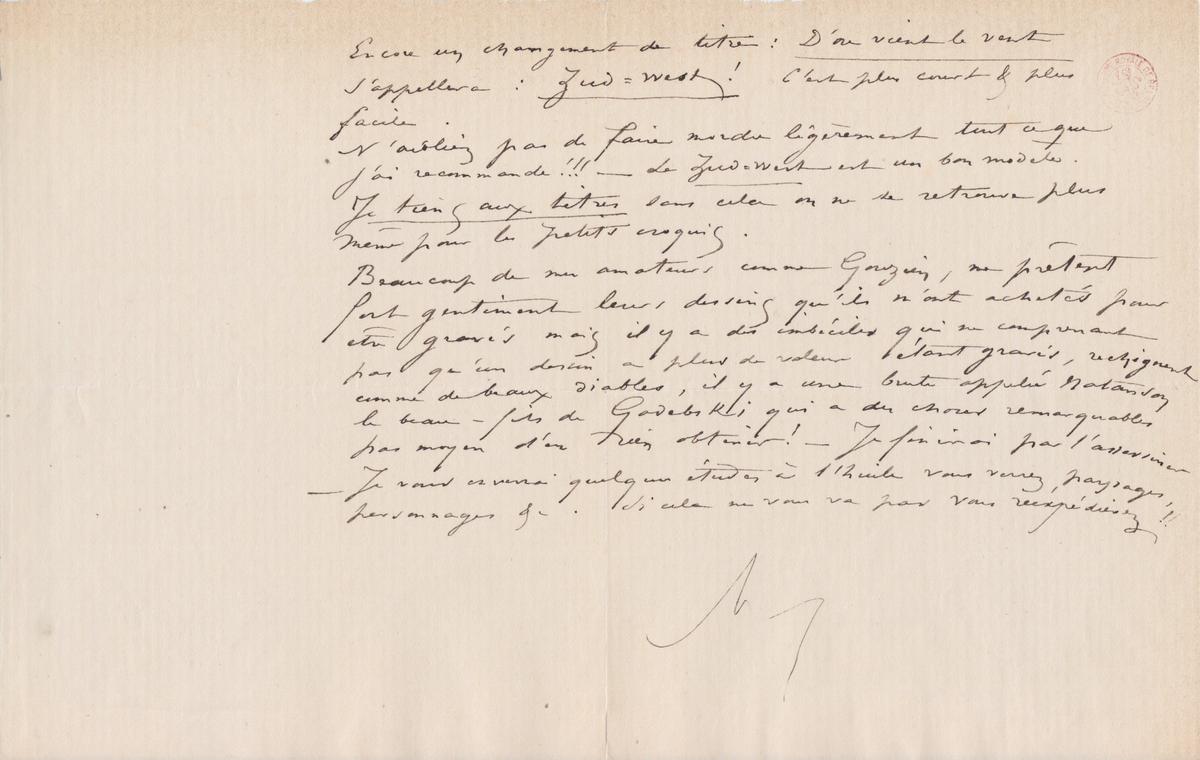 Encore un changement de titre : D'ou vient le vent
s'appellera : Zud=west ! C'est plus court & plus
facile .
N'oubliez pas de faire mordre légèrement tout ce que
j'ai recommandé !!! — Le Zud=west est un bon modèle .
Je tiens aux titres sans cela on ne se retrouve plus
même pour les petits croquis .
Beaucoup de mes amateurs comme Gouzien, me prêtent
fort gentiment leurs dessins qu'ils m'ont achetés pour
être gravés mais il y a des imbéciles qui ne comprenant
pas qu'un dessin a plus de valeur étant gravés, rechignent
comme de beaux diables, il y a une brute appelé Natanson
le beau-fils de Godebski qui a des choses remarquables
pas moyen d'en rien obtenir ! — Je finirai par l'assassiner
— Je vous enverrai quelques études à l'huile vous verrez, paysages,
personnages &c . Si cela ne vous va pas vous reexpédierez !!